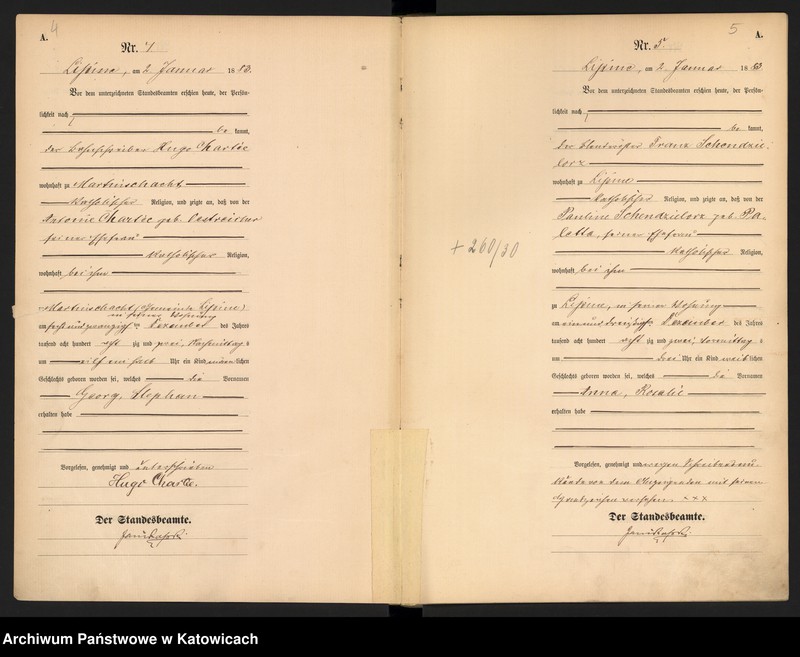 4
A.
Nr. 4
Lipine, am 2 Januar 1883.
Vor dem unterzeichneten Standesbeamten erschien heute, der Persön-
lichkeit nach
be kannt,
der Hugo Chartie
wohnhaft zu Martinschacht
katholischer Religion, und zeigte an, daß von der
Antonie Chartie geb.
seiner Ehefrau
katholischer Religion,
wohnhaft bei ihm
Martinschacht (Gemeinde Lipine)
in seiner Wohnung
am sechsundzwanzigsten Dezember des Jahres
tausend acht hundert achtzig und zwei, Nachmittag s
um elf ein halb Uhr ein Kind männlichen
Geschlechts geboren worden sei, welches die Vornamen
Georg, Stephan
erhalten habe
Vorgelesen, genehmigt und unterschrieben
Hugo Chartie.
Der Standesbeamte.
5
A.
Nr. 5.
Lipine, am 2 Januar 1883
Vor dem unterzeichneten Standesbeamten erschien heute, der Persön-
lichkeit nach
be kannt,
der Franz Schendzie-
lorz
wohnhaft zu Lipine
katholischer Religion, und zeigte an, daß von der
Pauline Schendzielorz geb. Pa-
letta, seiner Ehefrau
katholischer Religion,
wohnhaft bei ihm
zu Lipine, in seiner Wohnung
am einunddreißigsten Dezember des Jahres
tausend acht hundert achtzig und zwei, Vormittag s
um drei Uhr ein Kind weiblichen
Geschlechts geboren worden sei, welches die Vornamen
Anna, Rosalie
erhalten habe
Vorgelesen, genehmigt und wegen Schreibensun-
kunde von dem mit seinen
Handzeichen versehen. xxx
Der Standesbeamte.
+ 260/30
Archiwum Państwowe w Katowicach